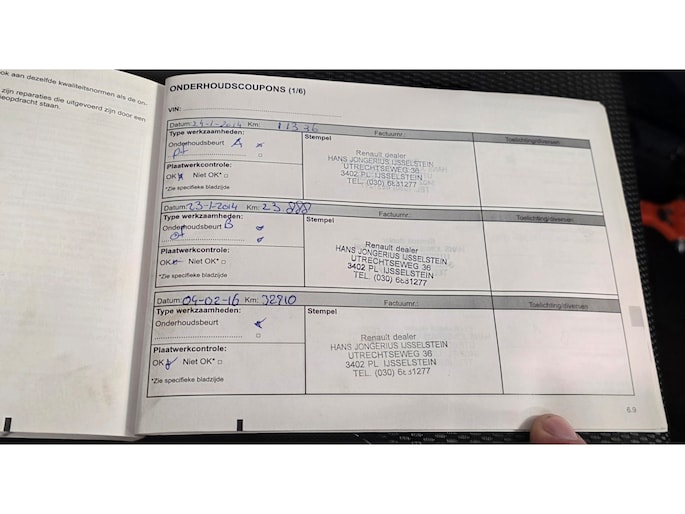 ok aan dezelfde kwaliteitsnormen als de on-
zijn reparaties die uitgevoerd zijn door een
eopdracht staan.
ONDERHOUDSCOUPONS (1/6)
VIN:
Datum: 24-1-2014 Km: 11376
Factuurnr.:
Toelichting/diversen
Type werkzaamheden:
Stempel
Onderhoudsbeurt A
Renault dealer
HANS JONGERIUS IJSSELSTEIN
UTRECHTSEWEG 36
3402 PL IJSSELSTEIN
TEL. (030) 6881277
Plaatwerkcontrole:
OK Niet OK*
*Zie specifieke bladzijde
Datum: 23-1-2014 Km: 23.888
Factuurnr.:
Toelichting/diversen
Type werkzaamheden:
Stempel
Onderhoudsbeurt B
Renault dealer
HANS JONGERIUS IJSSELSTEIN
UTRECHTSEWEG 36
3402 PL IJSSELSTEIN
TEL. (030) 6881277
Plaatwerkcontrole:
OK Niet OK*
*Zie specifieke bladzijde
Datum: 04-02-16 Km: 32910
Factuurnr.:
Toelichting/diversen
Type werkzaamheden:
Stempel
Onderhoudsbeurt
Renault dealer
HANS JONGERIUS IJSSELSTEIN
UTRECHTSEWEG 36
3402 PL IJSSELSTEIN
TEL. (030) 6881277
Plaatwerkcontrole:
OK Niet OK*
*Zie specifieke bladzijde
6.9